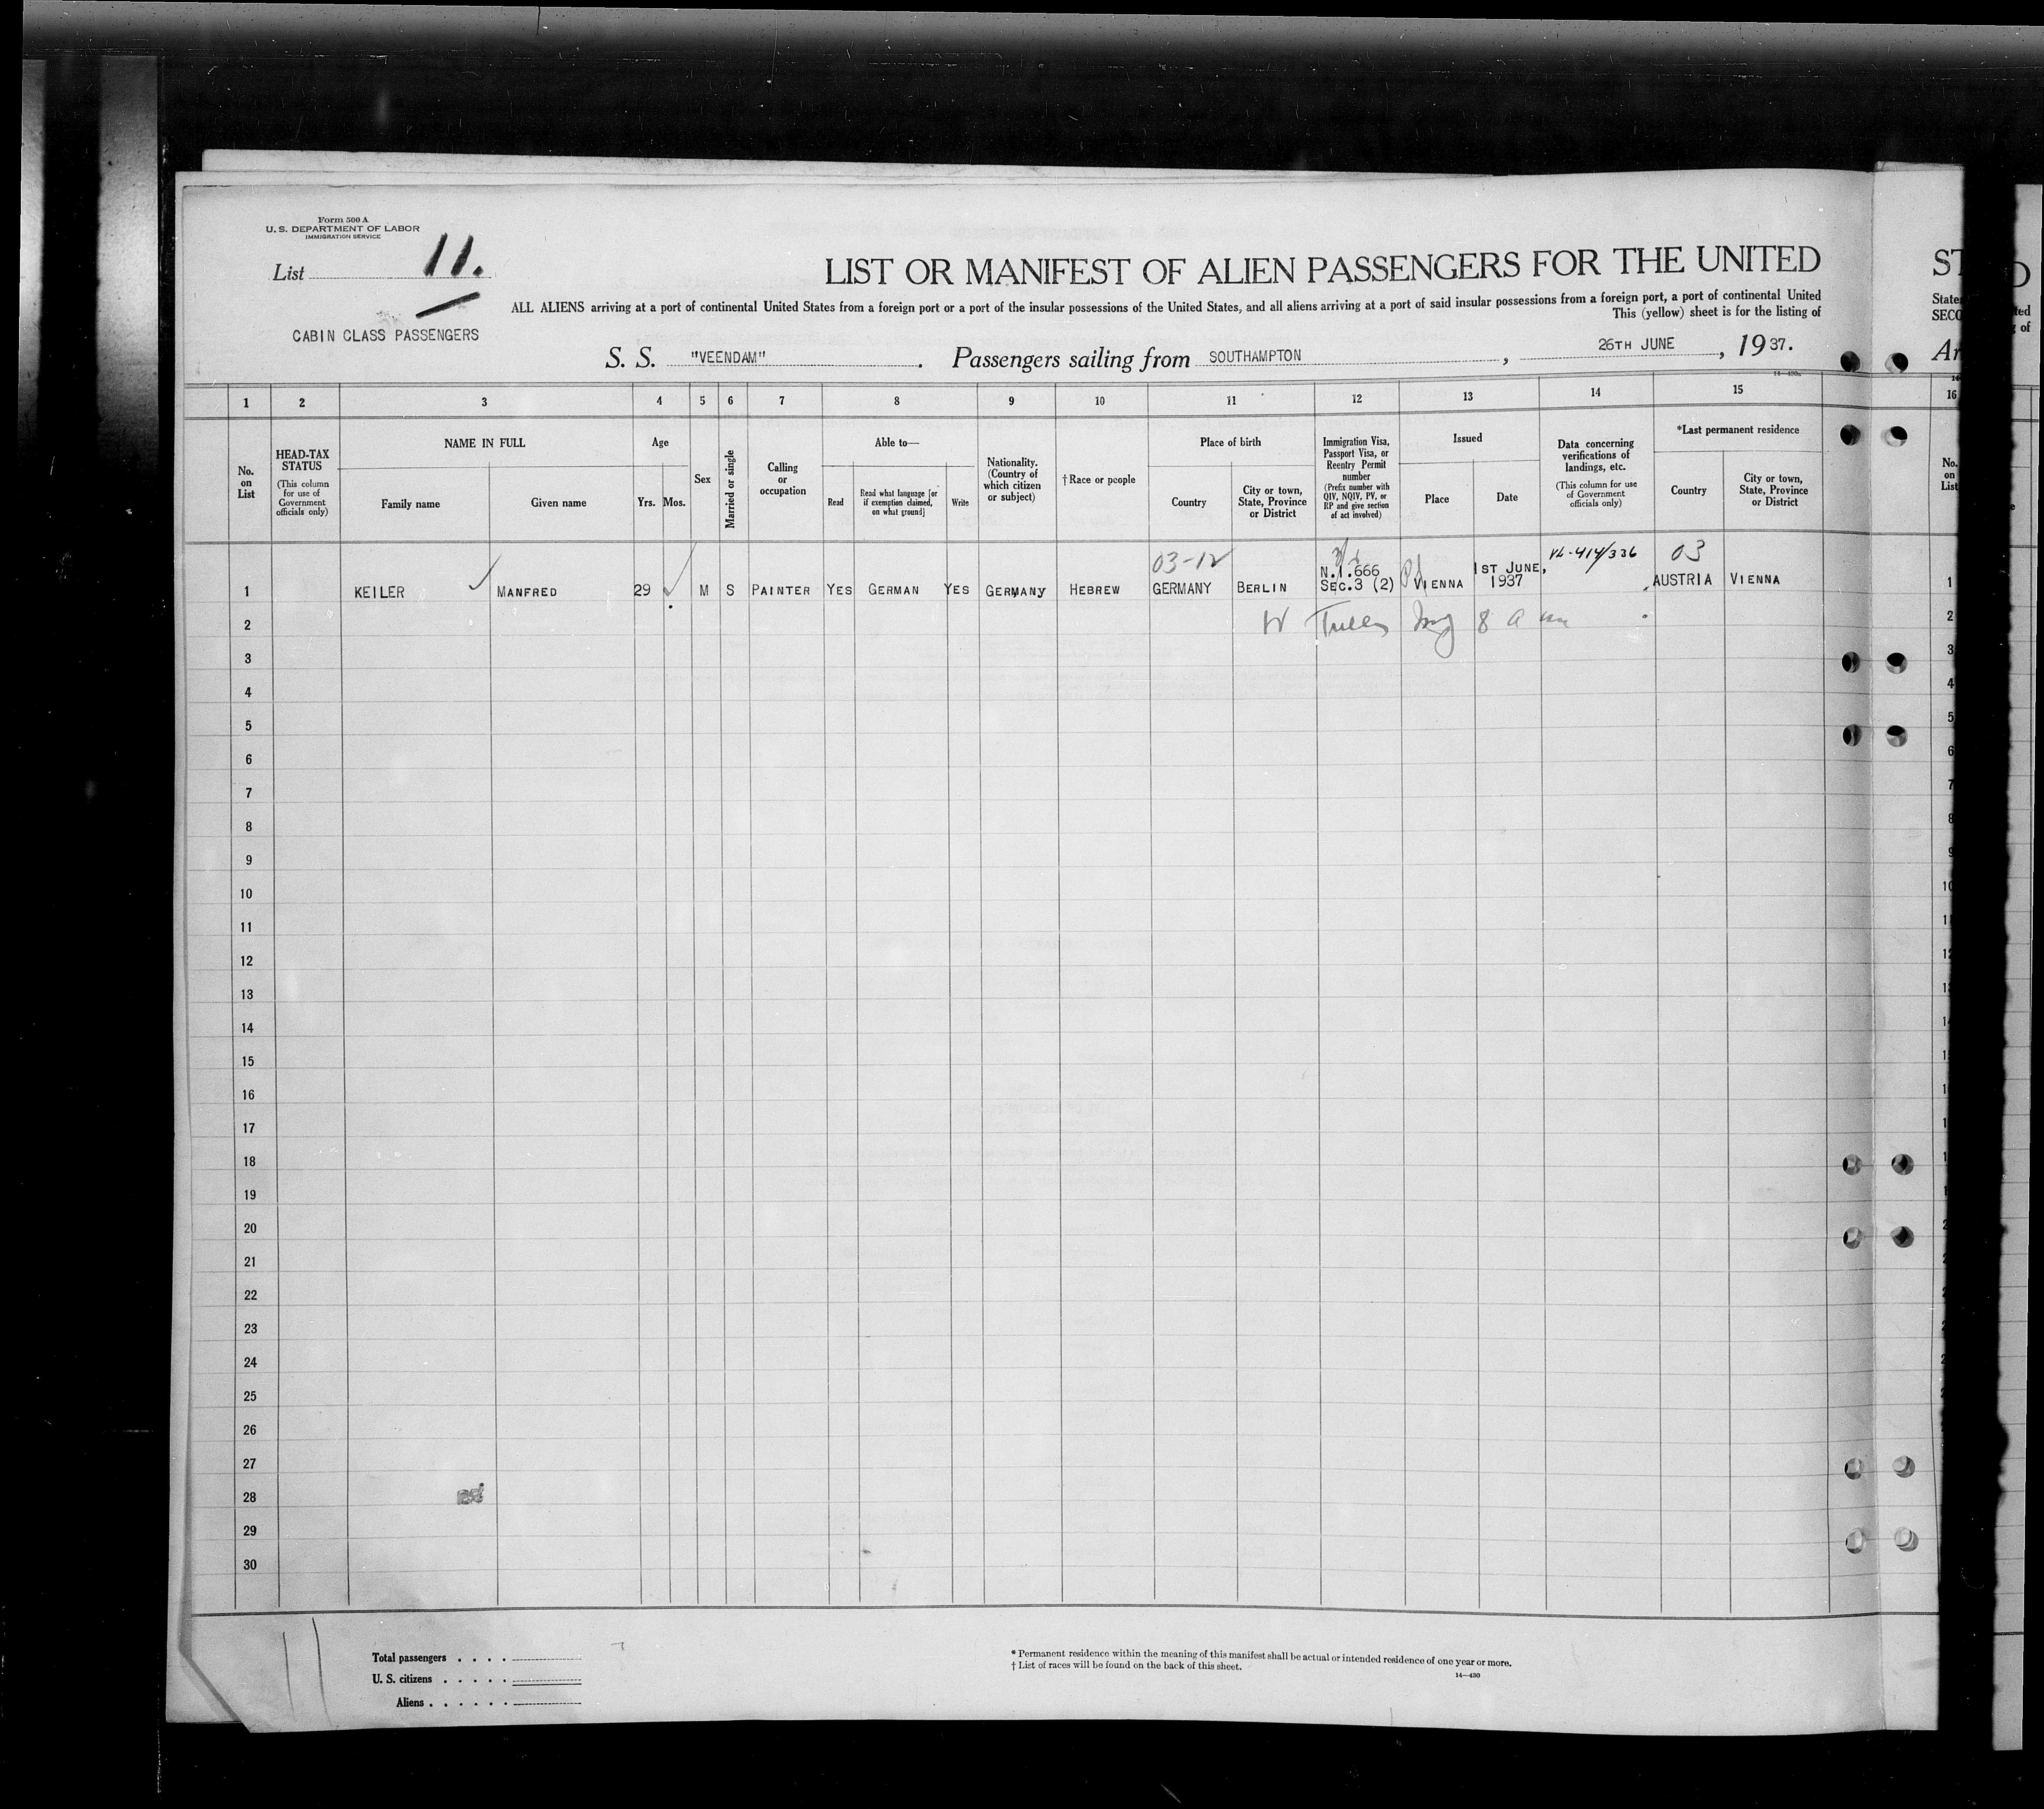 Form 500 A
U. S. DEPARTMENT OF LABOR
IMMIGRATION SERVICE
List 11.
CABIN CLASS PASSENGERS
LIST OR MANIFEST OF ALIEN PASSENGERS FOR THE UNITED
ALL ALIENS arriving at a port of continental United States from a foreign port or a port of the insular possessions of the United States, and all aliens arriving at a port of said insular possessions from a foreign port, a port of continental United
This (yellow) sheet is for the listing of
S. S. "VEENDAM" . Passengers sailing from SOUTHAMPTON , 26TH JUNE , 19 37.
1 2 3 4 5 6 7 8 9 10 11 12 13 14 15 16
No. on List
HEAD-TAX STATUS
(This column for use of Government officials only)
NAME IN FULL
Family name
Given name
Age
Yrs. Mos.
Sex
Married or single
Calling or occupation
Able to—
Read
Read what language [or if exemption claimed, on what ground]
Write
Nationality. (Country of which citizen or subject)
† Race or people
Place of birth
Country
City or town, State, Province or District
Immigration Visa, Passport Visa, or Reentry Permit number
(Prefix number with QIV, NQIV, PV, or RP and give section of act involved)
Issued
Place
Date
Data concerning verifications of landings, etc.
(This column for use of Government officials only)
*Last permanent residence
Country
City or town, State, Province or District
No. on List
03-12 VL-414/336 03
1 KEILER MANFRED 29 M S PAINTER YES GERMAN YES GERMANY HEBREW GERMANY BERLIN N.I.666 SEC.3 (2) VIENNA 1ST JUNE, 1937 AUSTRIA VIENNA 1
2 8 a m 2
3 3
4 4
5 5
6 6
7 7
8 8
9 9
10 10
11
12
13
14
15
16
17
18
19
20
21
22
23
24
25
26
27
28
29
30
Total passengers . . . .
U. S. citizens . . . . .
Aliens . . . . . .
* Permanent residence within the meaning of this manifest shall be actual or intended residence of one year or more.
† List of races will be found on the back of this sheet.
14—430